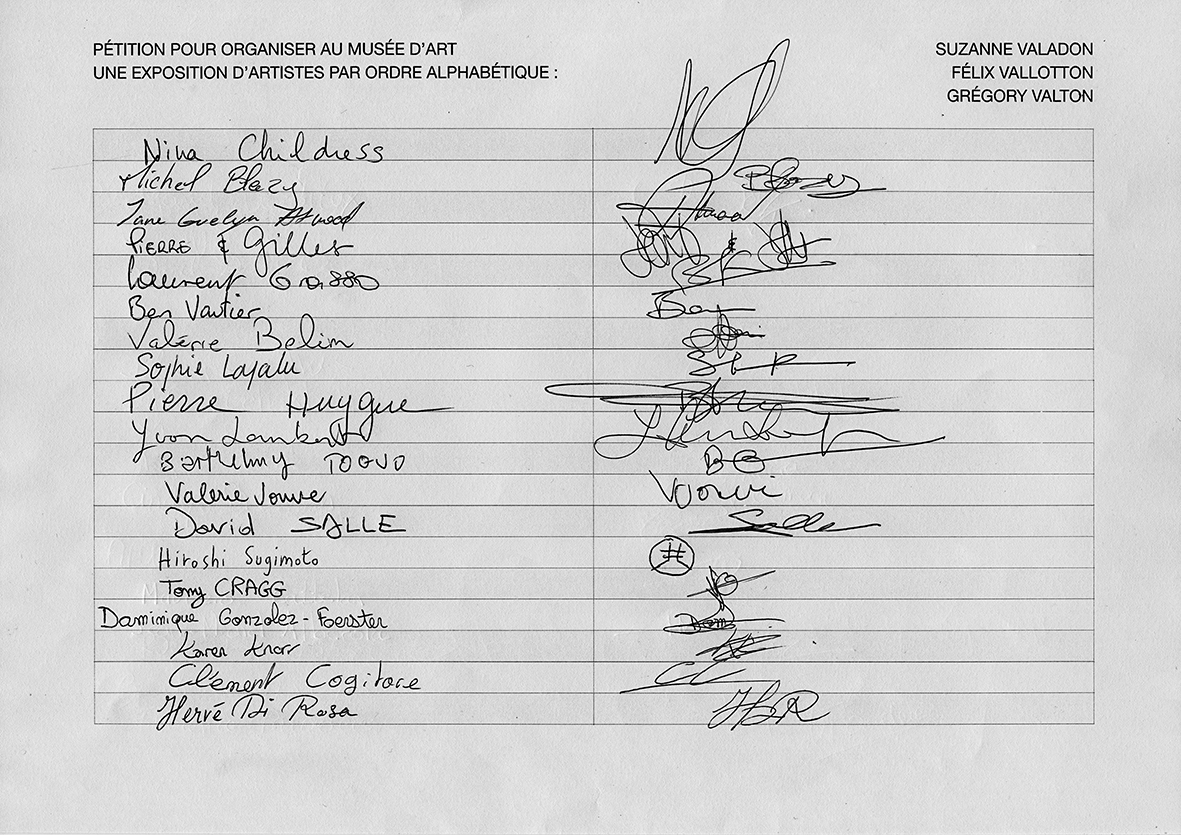 PÉTITION POUR ORGANISER AU MUSÉE D'ART
UNE EXPOSITION D'ARTISTES PAR ORDRE ALPHABÉTIQUE :
SUZANNE VALADON
FÉLIX VALLOTTON
GRÉGORY VALTON
Nina Childress
Michel Blazy Blazy
Jane Evelyn Atwood
PIERRE & Gilles &
Laurent Grasso
Ben Vautier Ben
Valérie Belin
Sophie Lapalu SLP
Pierre Huyghe
Yvon Lambert
Barthélmy TOGUO
Valérie Jouve
David SALLE Salle
Hiroshi Sugimoto
Tony CRAGG
Daminique Gonzalez-Foerster Dom
Karen Knorr
Clément Cogitore CC
Hervé Di Rosa HDR